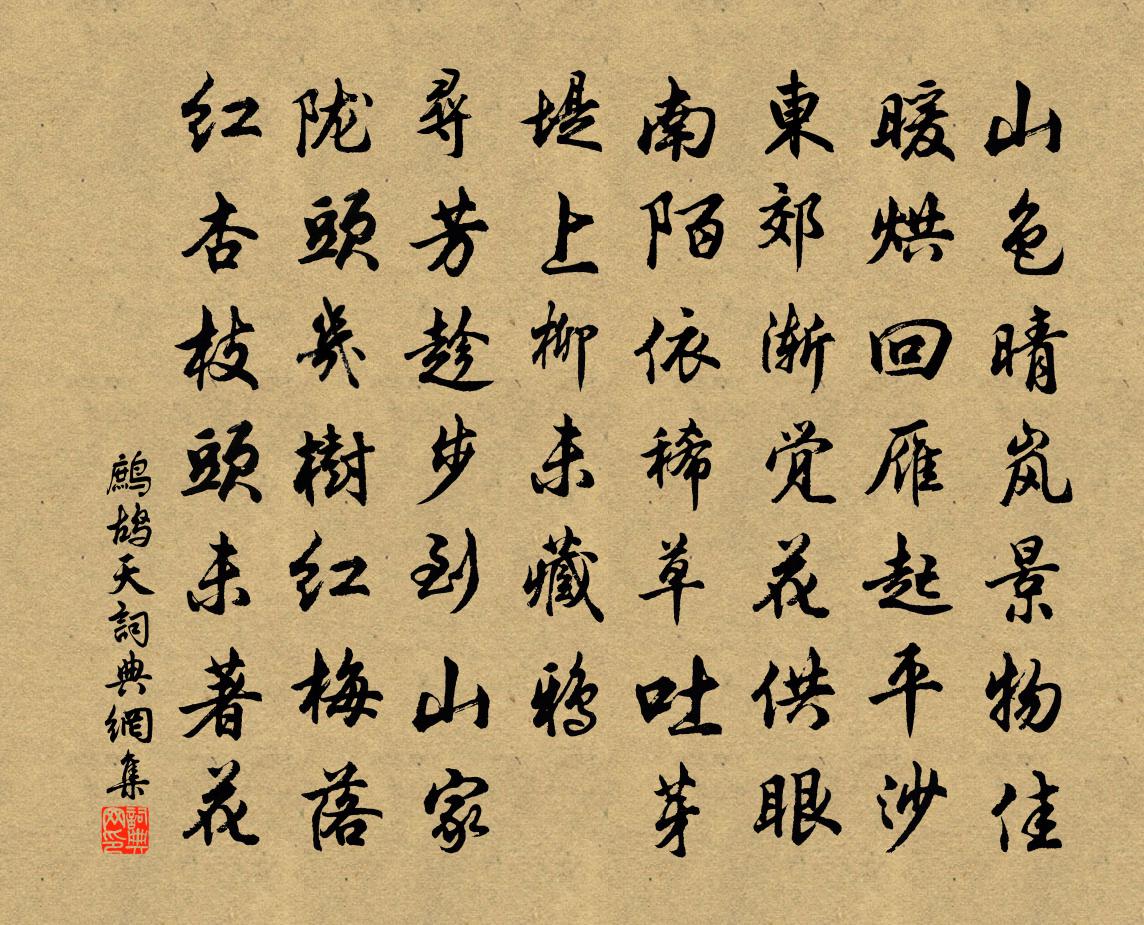 山色晴岚景物佳
暖烘回雁起平沙
東郊渐觉花供眼
南陌依稀草吐芽
堤上柳未藏鸦
尋芳趁步到山家
陇頭幾樹红梅落
红杏枝頭未著花
鷓鸪天詞典網集
詞典网印